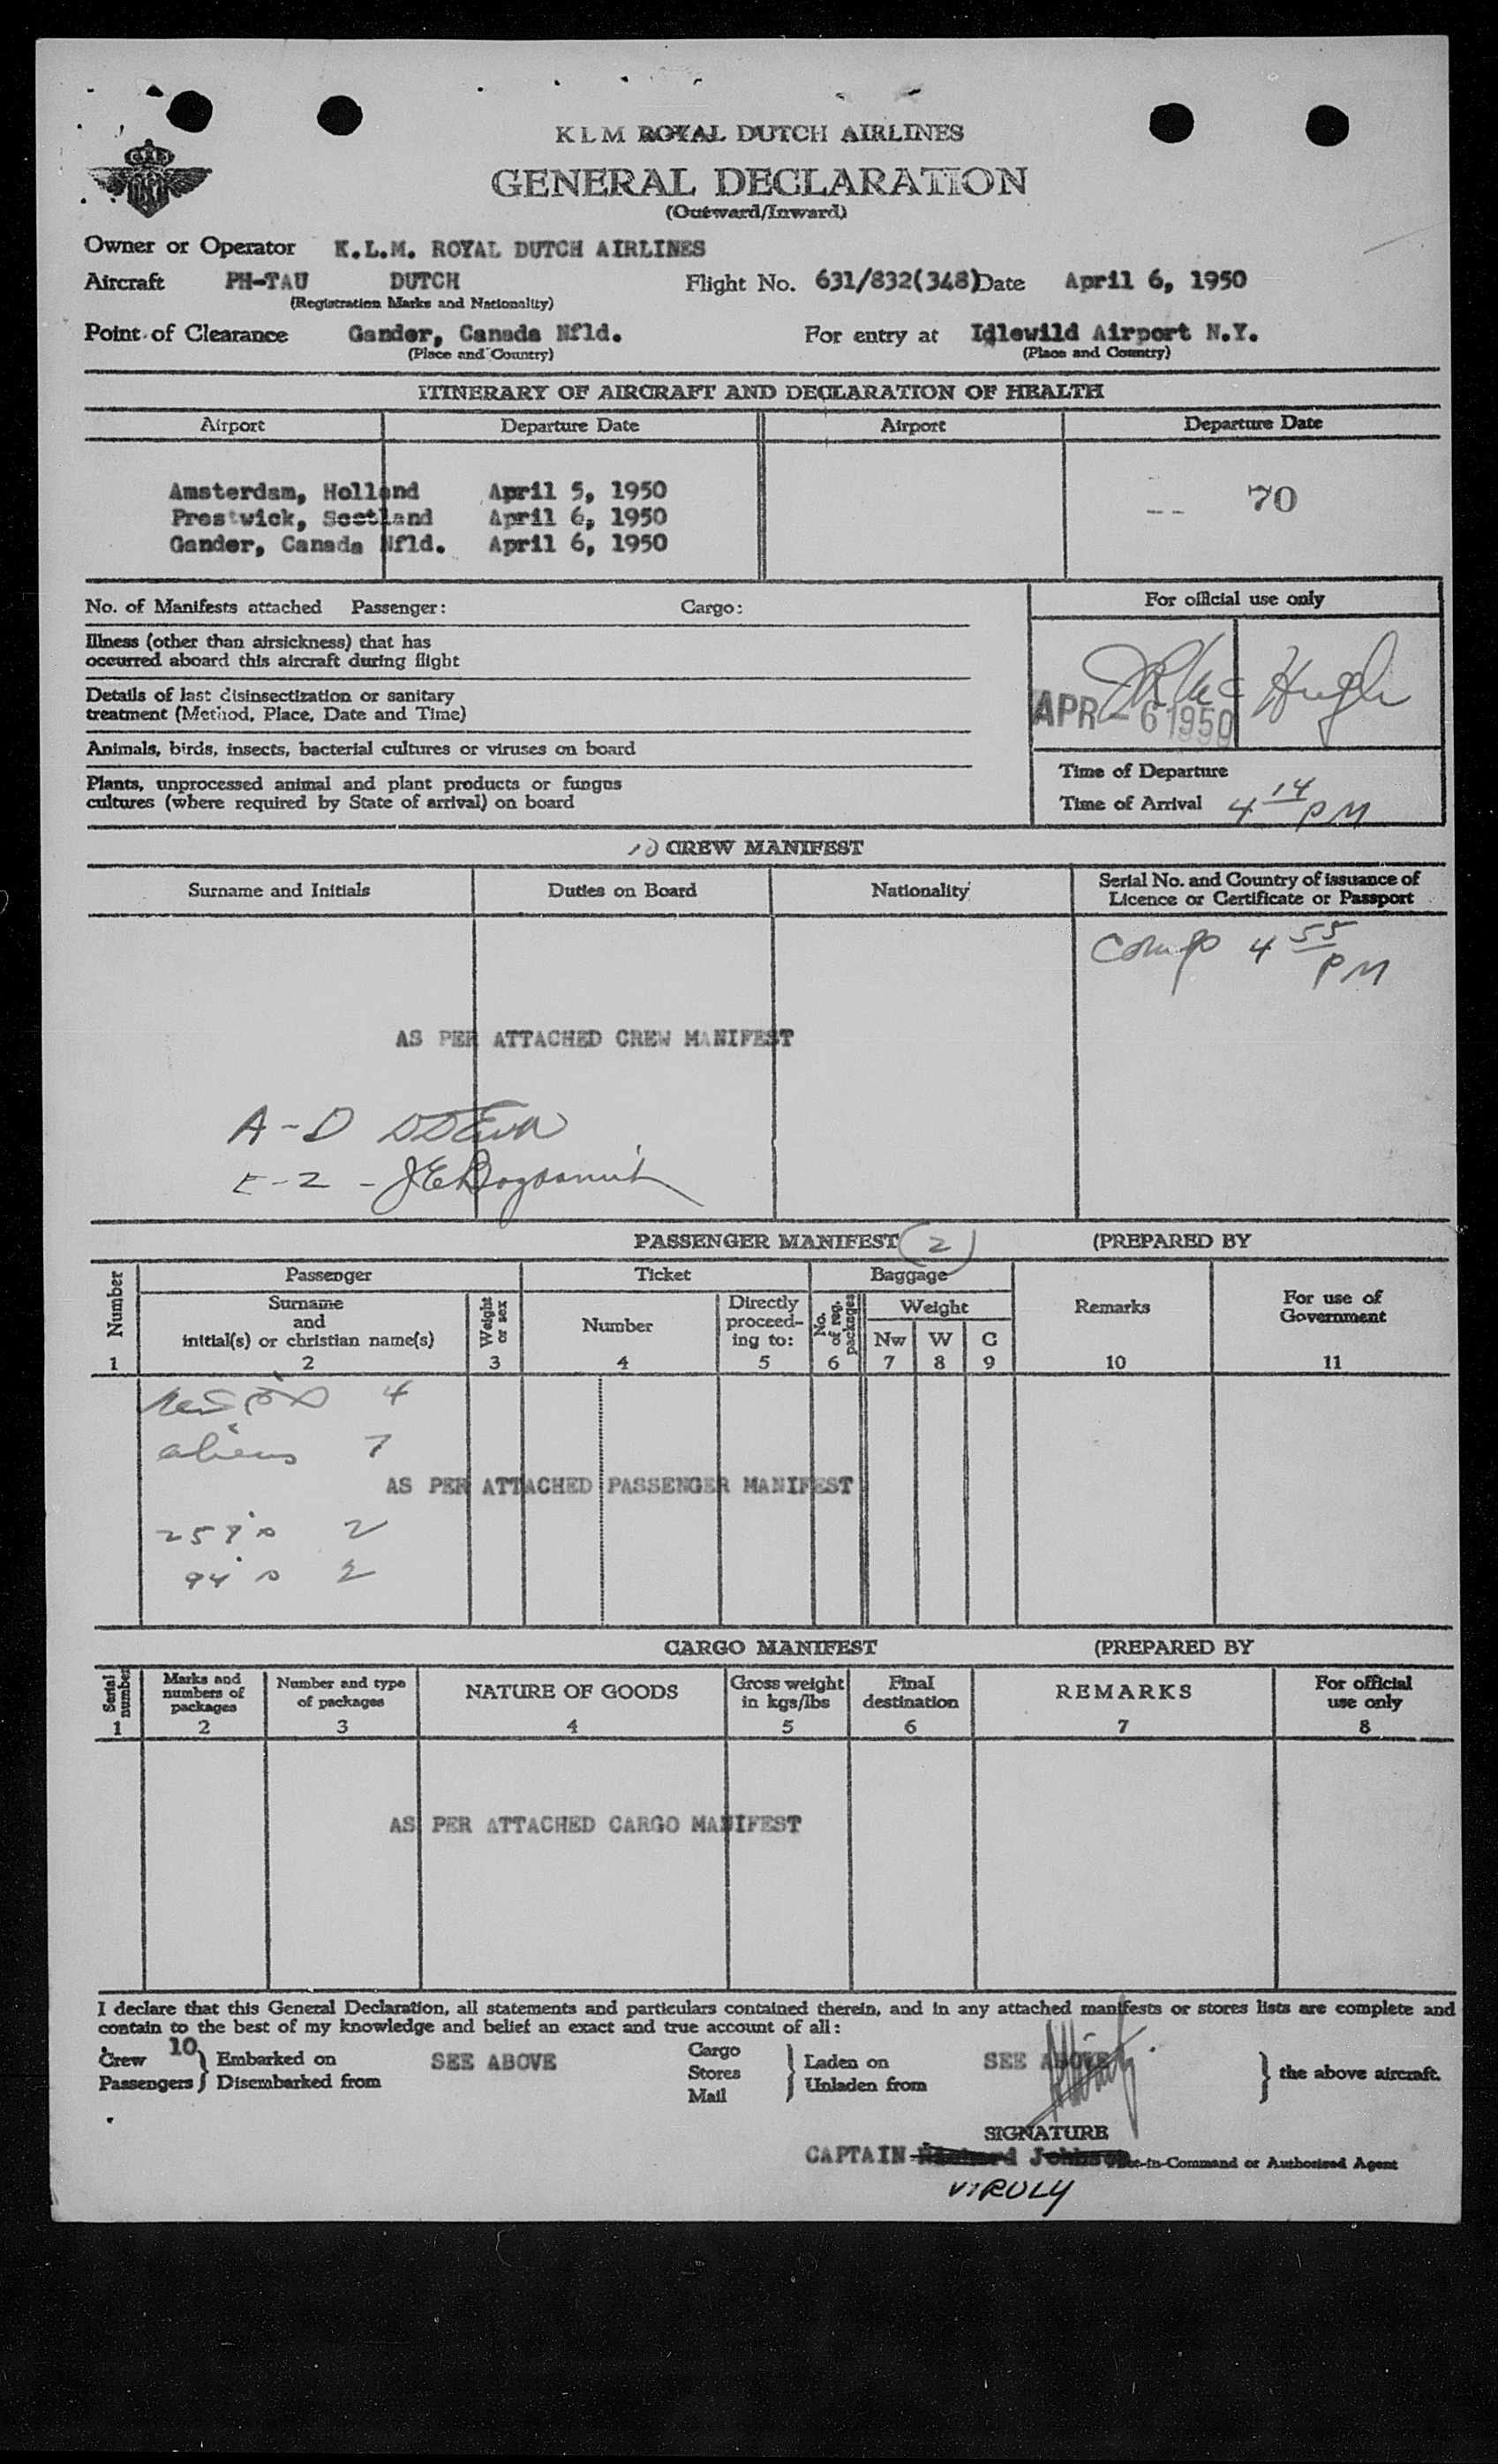 KLM ROYAL DUTCH AIRLINES
GENERAL DECLARATION
(Outward/Inward)
Owner or Operator K.L.M. ROYAL DUTCH AIRLINES
Aircraft PH-TAU DUTCH Flight No. 631/832(348) Date April 6, 1950
(Registration Marks and Nationality)
Point of Clearance Gander, Canada Nfld. For entry at Idlewild Airport N.Y.
(Place and Country) (Place and Country)
ITINERARY OF AIRCRAFT AND DECLARATION OF HEALTH
Airport Departure Date Airport Departure Date
Amsterdam, Holland April 5, 1950 70
Prestwick, Scotland April 6, 1950
Gander, Canada Nfld. April 6, 1950
No. of Manifests attached Passenger: Cargo: For official use only
Illness (other than airsickness) that has
occurred aboard this aircraft during flight
Details of last disinsectization or sanitary
treatment (Method, Place, Date and Time)
APR - 6 1950
Animals, birds, insects, bacterial cultures or viruses on board
Plants, unprocessed animal and plant products or fungus
cultures (where required by State of arrival) on board
Time of Departure
Time of Arrival 4 14 PM
10 CREW MANIFEST
Surname and Initials Duties on Board Nationality Serial No. and Country of issuance of
Licence or Certificate or Passport
Comp 4 55 PM
AS PER ATTACHED CREW MANIFEST
A-D
E-Z -
PASSENGER MANIFEST (2) (PREPARED BY
Number Passenger Ticket Baggage Remarks For use of
Government
Surname
and
initial(s) or christian name(s) Weight or sex Number Directly
proceed-
ing to: No. of reg. packages Weight
Nw W C
1 2 3 4 5 6 7 8 9 10 11
4
aliens 7
AS PER ATTACHED PASSENGER MANIFEST
257's 2
94's 2
CARGO MANIFEST (PREPARED BY
Serial number Marks and
numbers of
packages Number and type
of packages NATURE OF GOODS Gross weight
in kgs/lbs Final
destination REMARKS For official
use only
1 2 3 4 5 6 7 8
AS PER ATTACHED CARGO MANIFEST
I declare that this General Declaration, all statements and particulars contained therein, and in any attached manifests or stores lists are complete and
contain to the best of my knowledge and belief an exact and true account of all:
Crew 10 Embarked on SEE ABOVE Cargo Laden on SEE ABOVE
Passengers Disembarked from Stores Unladen from the above aircraft.
Mail
SIGNATURE
CAPTAIN Pilot-in-Command or Authorised Agent
VIRULY